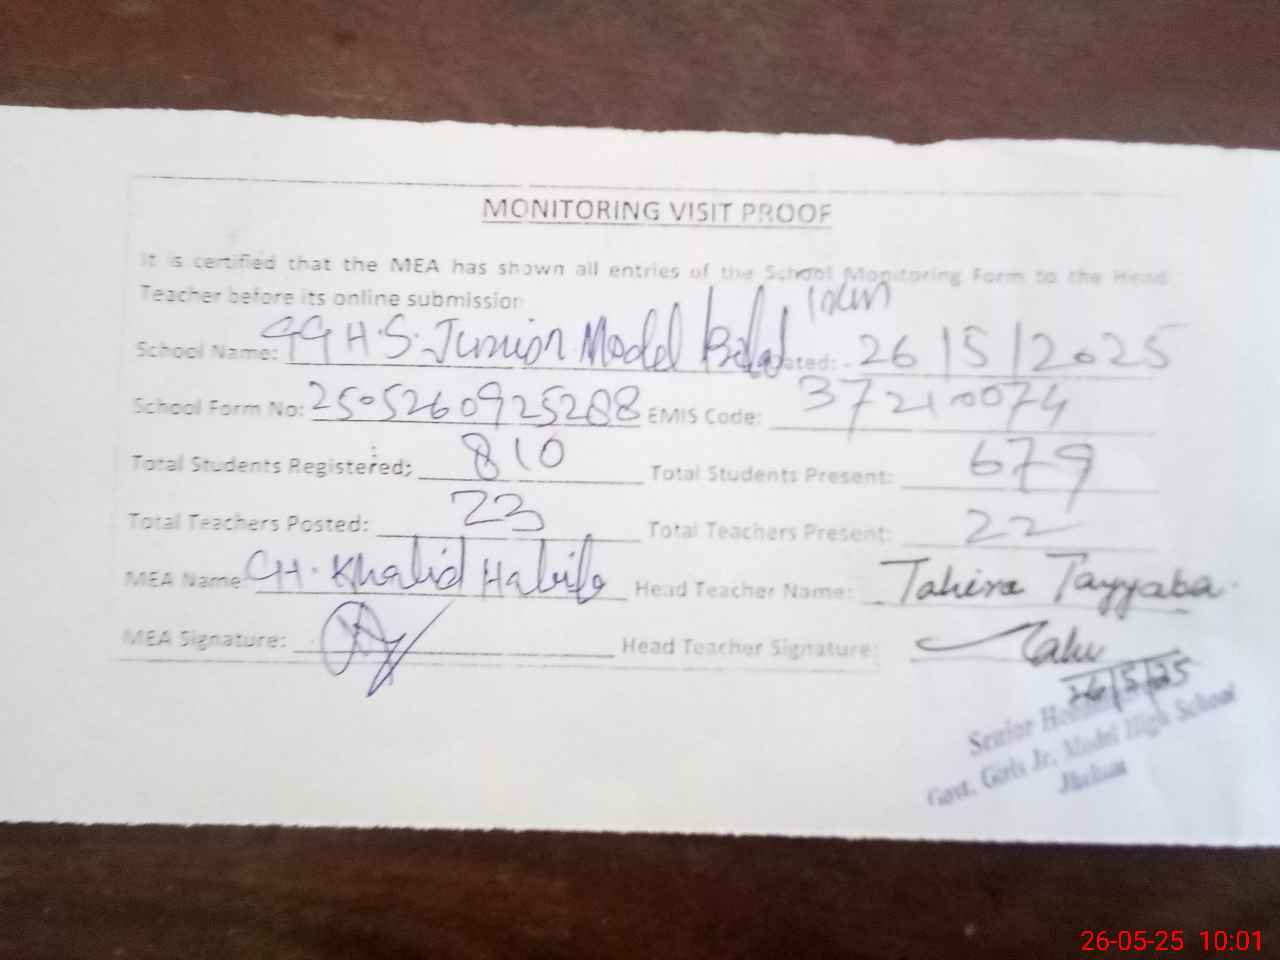 MONITORING VISIT PROOF
It is certified that the MEA has shown all entries of the School Monitoring Form to the Head
Teacher before its online submission
School Name: GGH.S. Junior Model Dated: 26/5/2025
School Form No: 2505260925288 EMIS Code: 37210074
Total Students Registered: 810 Total Students Present: 679
Total Teachers Posted: 23 Total Teachers Present: 22
MEA Name: CH. Khalid Habib Head Teacher Name: Tahira Tayyaba.
MEA Signature: Head Teacher Signature:
26/5/25
Senior
Govt. Girls Jr. Model High School
Jhelum
26-05-25 10:01